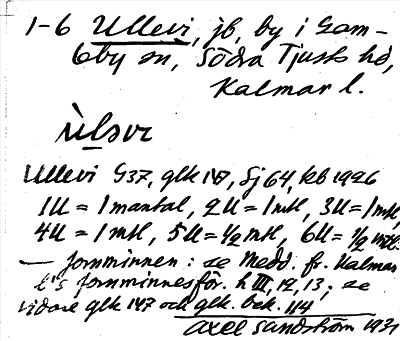 1-6 Ullevi, jb, by i Gam-
leby sn, Södra Tjusts hd,
Kalmar l.
Ullevi G37, glk 147, Sj 64, kb 1926
1U = 1 mantal, 2U = 1 mtl, 3U = 1 mtl,
4U = 1 mtl, 5U = 1/2 mtl, 6U = 1/2 mtl.
— fornminnen: se Medd. fr. Kalmar
l:s fornminnesför. h III, 12, 13; se
vidare glk 147 och glk. bek. 114
Axel Sandström 1931